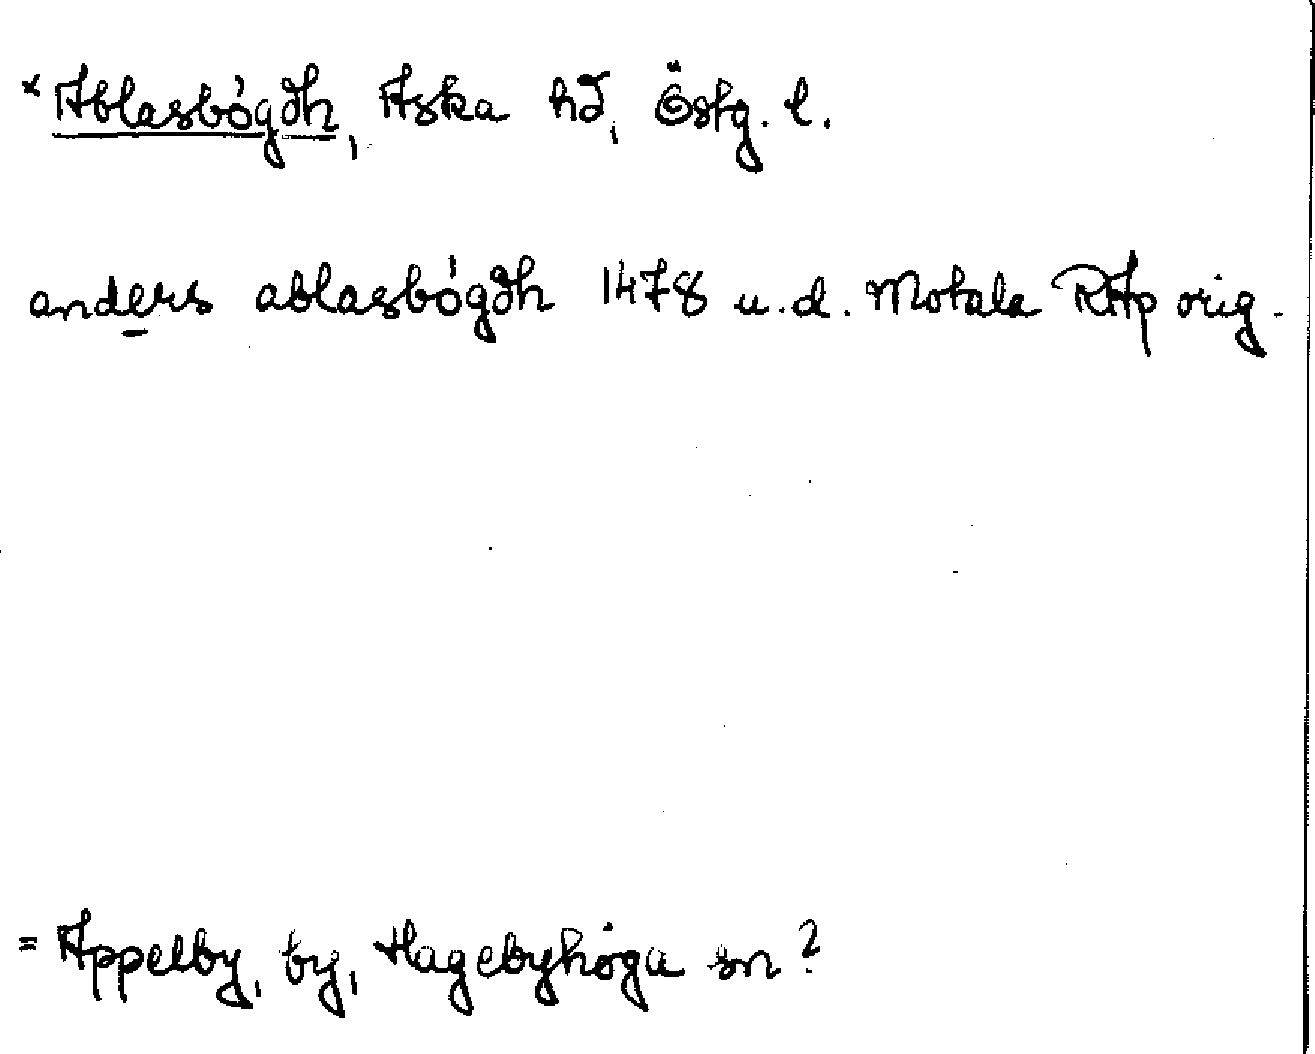 × Ablasbógdh, Aska hd, Östg. l.
anders ablasbógdh 1478 u.d. Motala RAp orig.
= Appelby, by, Hagebyhöga sn?